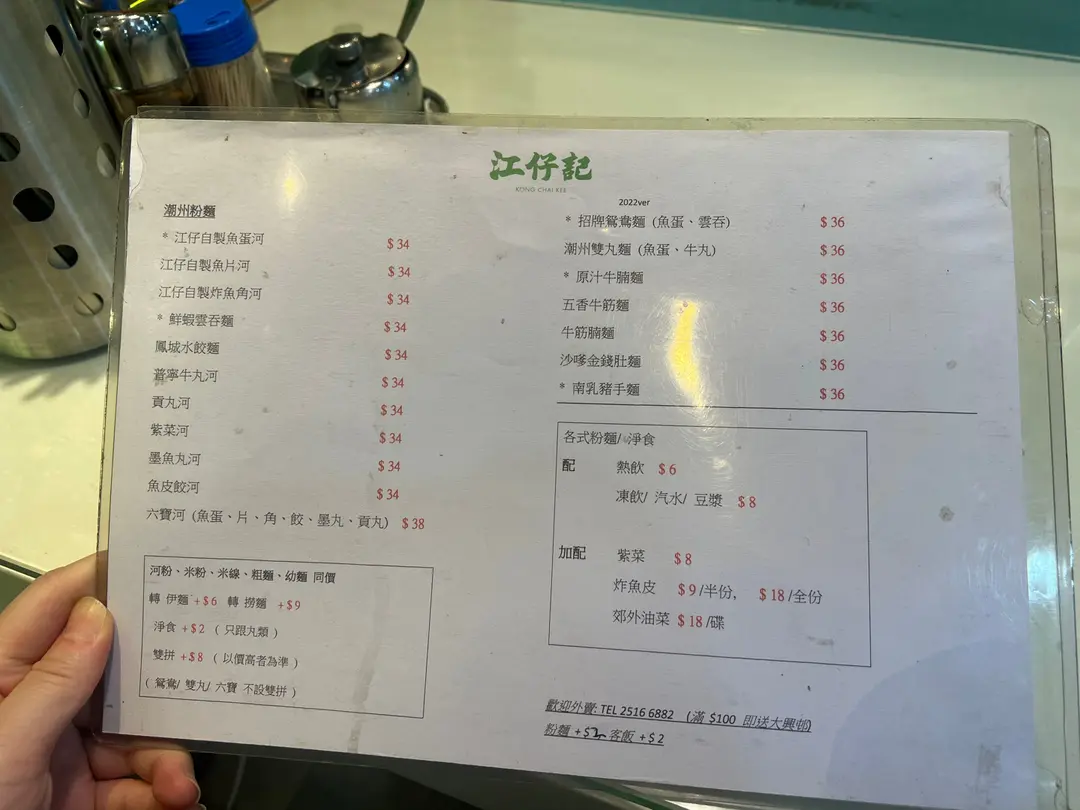 江仔記
KONG CHAI KEE
2022ver
潮州粉麵
* 江仔自製魚蛋河 $ 34
江仔自製魚片河 $ 34
江仔自製炸魚角河 $ 34
* 鮮蝦雲吞麵 $ 34
鳳城水餃麵 $ 34
普寧牛丸河 $ 34
貢丸河 $ 34
紫菜河 $ 34
墨魚丸河 $ 34
魚皮餃河 $ 34
六寶河 (魚蛋、片、角、餃、墨丸、貢丸) $ 38
河粉、米粉、米線、粗麵、幼麵 同價
轉 伊麵 +$ 6 轉 撈麵 +$ 9
淨食 +$ 2 ( 只跟丸類 )
雙拼 +$ 8 ( 以價高者為準 )
( 鴛鴦/ 雙丸/ 六寶 不設雙拼 )
* 招牌鴛鴦麵 (魚蛋、雲吞) $ 36
潮州雙丸麵 (魚蛋、牛丸) $ 36
* 原汁牛腩麵 $ 36
五香牛筋麵 $ 36
牛筋腩麵 $ 36
沙嗲金錢肚麵 $ 36
* 南乳豬手麵 $ 36
各式粉麵/ 淨食
配 熱飲 $ 6
凍飲/ 汽水/ 豆漿 $ 8
加配 紫菜 $ 8
炸魚皮 $ 9 /半份, $ 18 /全份
郊外油菜 $ 18 /碟
歡迎外賣: TEL 2516 6882 (滿 $100 即送大興邨)
粉麵 +$2 客飯 +$ 2